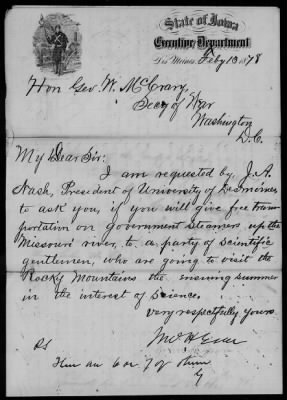 State of Iowa
Executive Department
Des Moines, Feby 13 1878
Hon Geo. W. McCrary,
Secy of War
Washington
D.C.
My Dear Sir:
I am requested by, J. A.
Nash, President of University of Des Moines
to ask you, if you will give free trans
portation on government steamers up the
Missouri river, to a party of scientific
gentlemen, who are going to visit the
Rocky Mountains the ensuing summer
in the interest of science.
Very respectfully yours
PS
6 or 7 of them